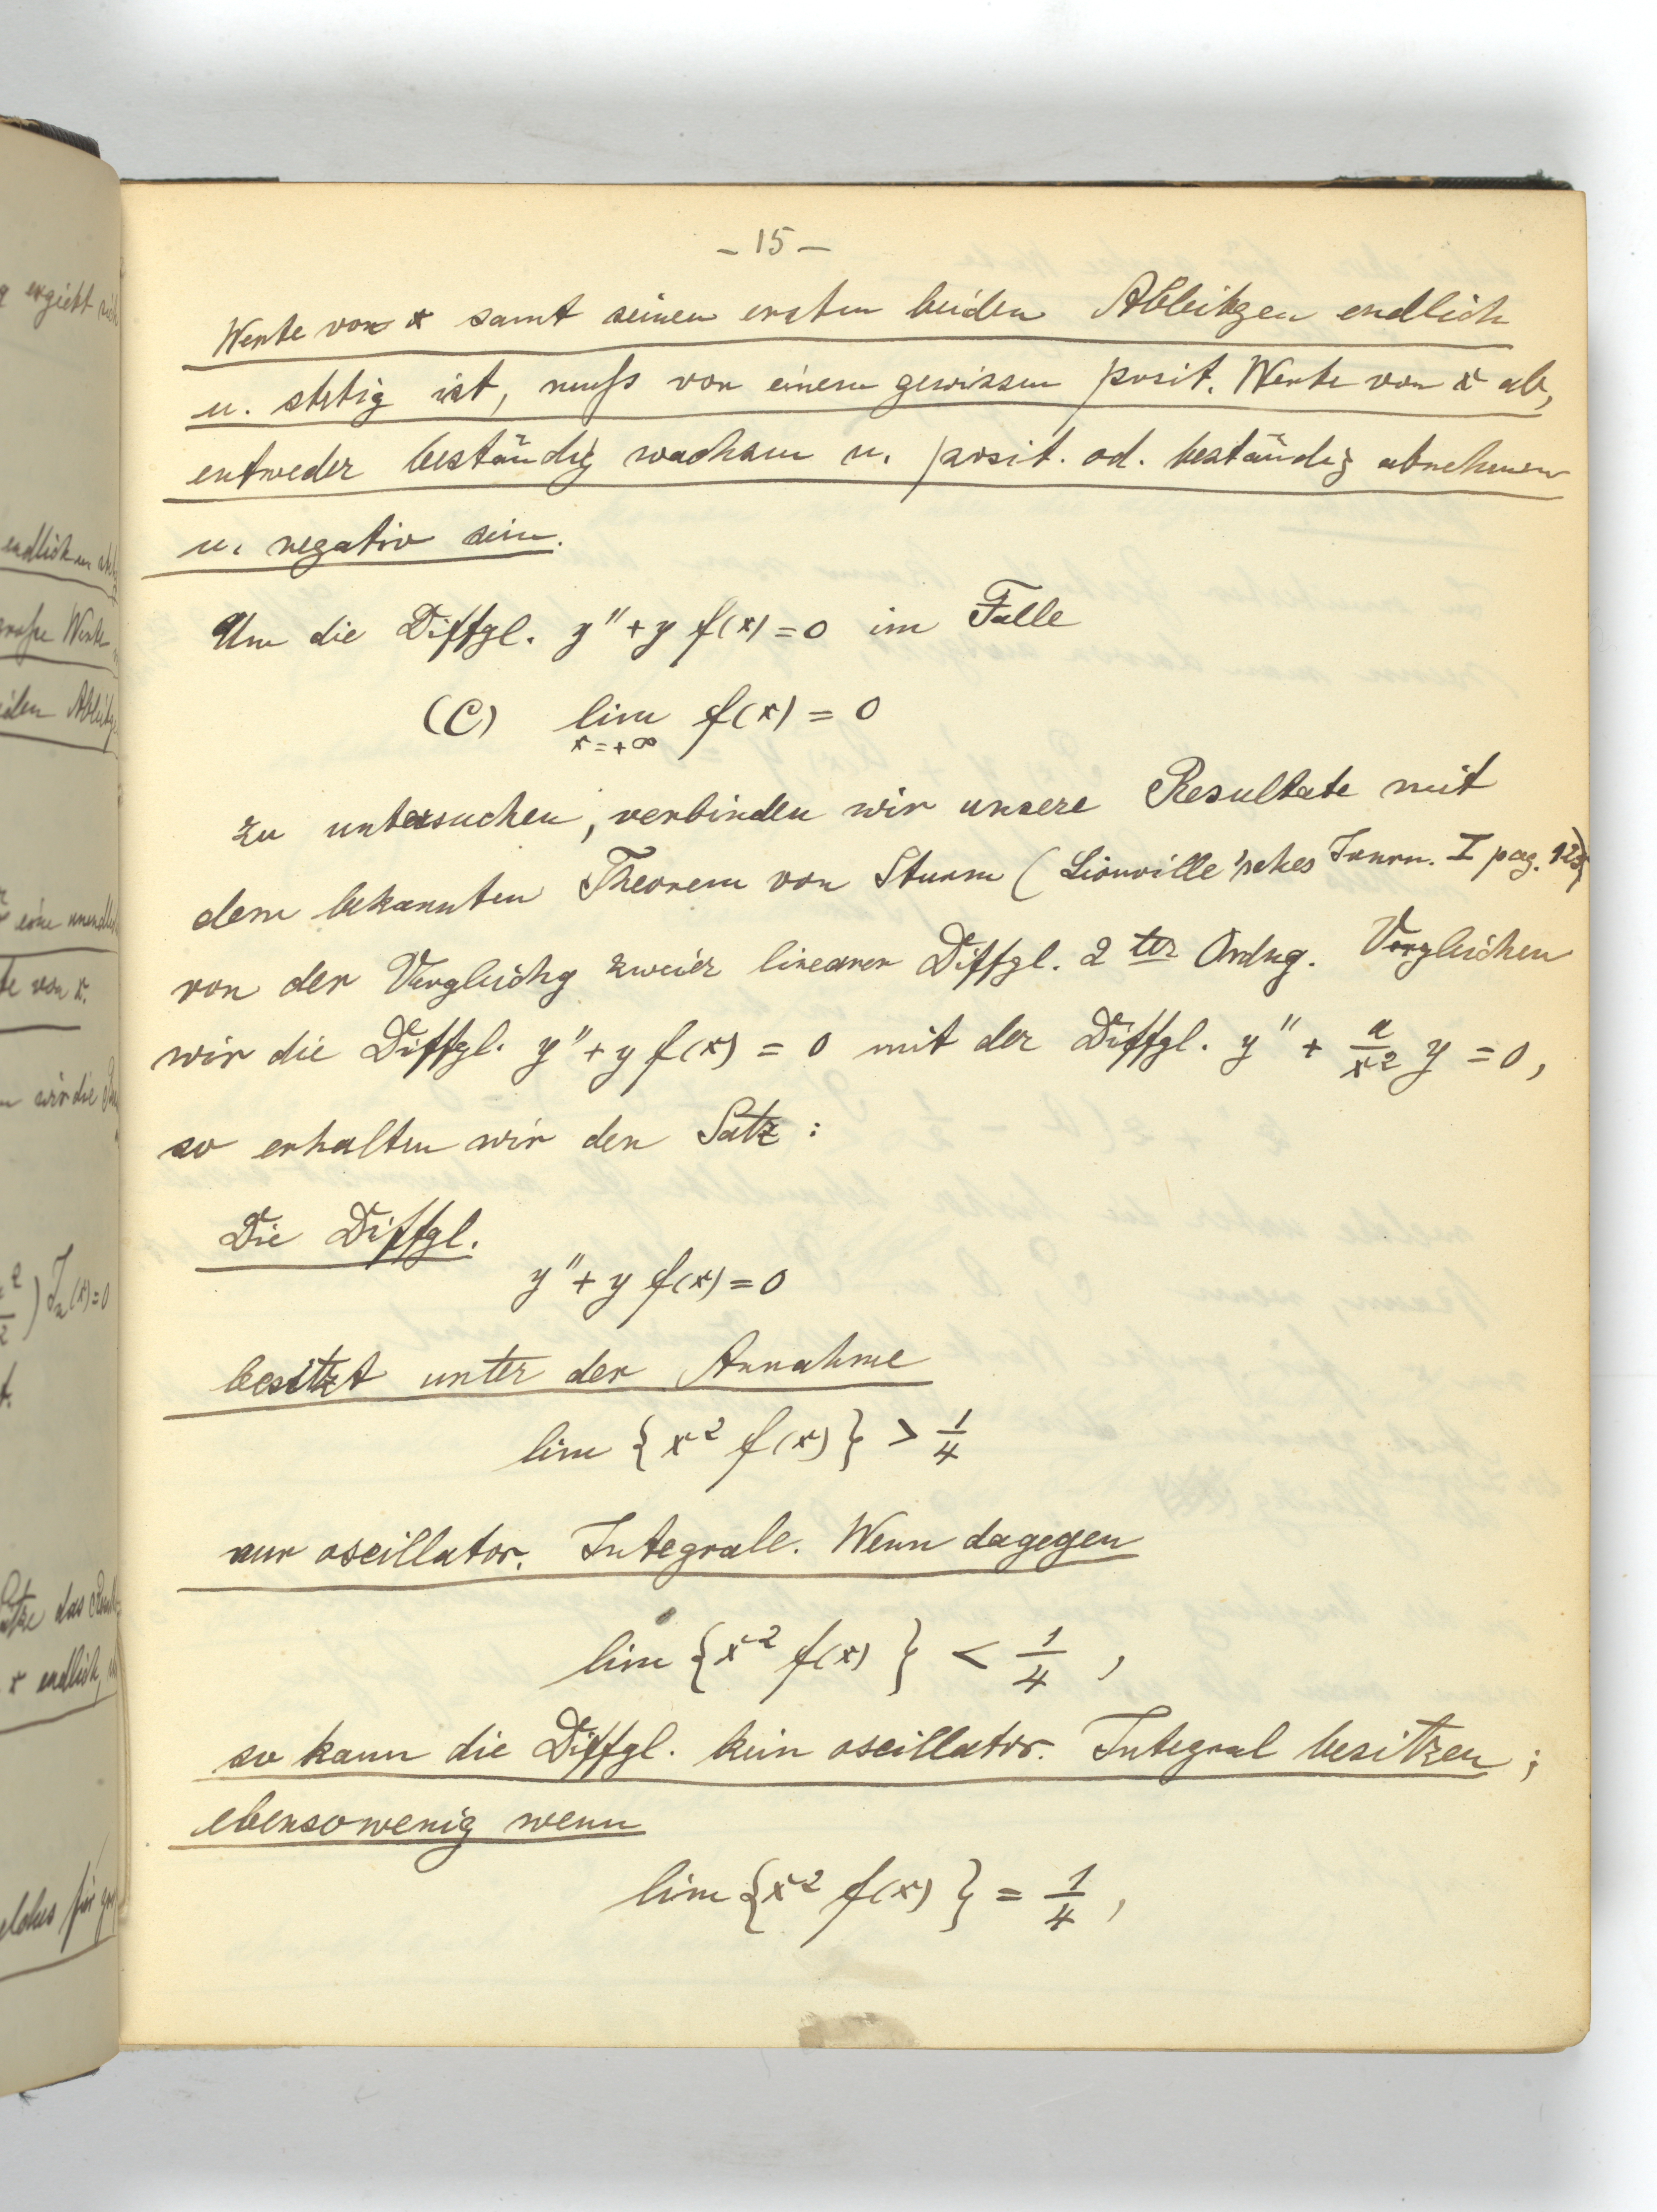 g ergiebt sich
endlich
große Werte
eine unendl
te von x.
wir die
) J_n(x)=0
das
x endlich,
für
- 15 -
Werte von x samt seinen ersten beiden Ableitgen endlich
u. stetig ist, muß von einem gewissen posit. Werte von x ab,
entweder beständig wachsen u. posit. od. beständig abnehmen
u. negativ sein.
Um die Diffgl. y'' + y f(x) = 0 im Falle
(C) lim f(x) = 0
x=+∞
zu untersuchen, verbinden wir unsere Resultate mit
dem bekannten Theorem von Sturm (Liouville'sches Journ. I pag.
von der Vergleichg zweier linearer Diffgl. 2ter Ordng. Vergleichen
wir die Diffgl. y'' + y f(x) = 0 mit der Diffgl. y'' + a/x² y = 0,
so erhalten wir den Satz :
Die Diffgl.
y'' + y f(x) = 0
besitzt unter der Annahme
lim {x² f(x)} > 1/4
nur oscillator. Integrale. Wenn dagegen
lim {x² f(x)} < 1/4 ,
so kann die Diffgl. kein oscillator. Integral besitzen ;
ebensowenig wenn
lim {x² f(x)} = 1/4 ,